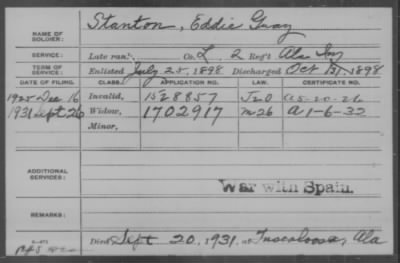 NAME OF SOLDIER: Stanton, Eddie Gray
SERVICE: Late rank, Co. L 2 Reg't Ala Inf
TERM OF SERVICE: Enlisted July 25, 1898 Discharged Oct 31, 1898
DATE OF FILING. CLASS. APPLICATION NO. LAW. CERTIFICATE NO.
1925 Dec 16 Invalid, 1528857 J20 A 5-20-26
1931 Sept 26 Widow, 1702917 M26 A 1-6-32
Minor,
ADDITIONAL SERVICES:
War with Spain.
REMARKS:
Died Sept 20, 1931, at Tuscaloosa, Ala